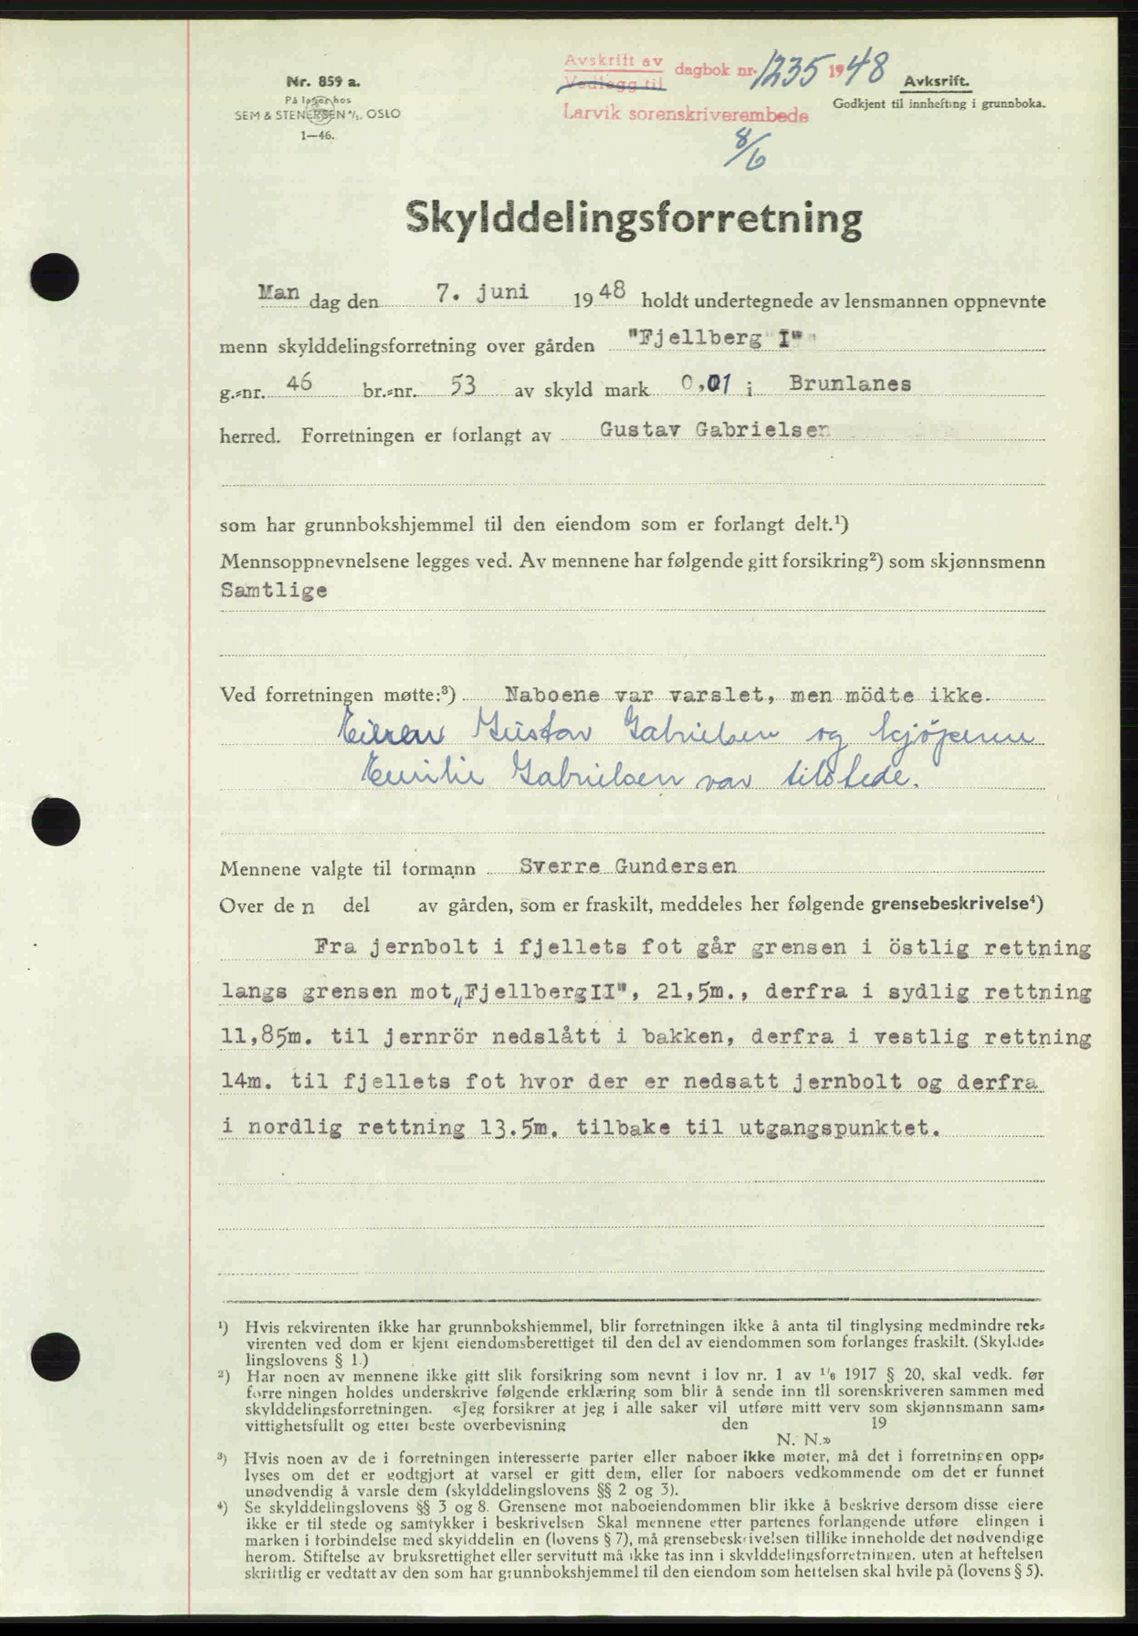 Nr. 859 a.
På lager hos
SEM & STENERSEN A/S. OSLO
1—46.
Avskrift av
Vedlegg til
dagbok nr. 1235 1948
Larvik sorenskriverembede
8/6
Avksrift.
Godkjent til innhefting i grunnboka.
Skylddelingsforretning
Man dag den 7. juni 1948 holdt undertegnede av lensmannen oppnevnte
menn skylddelingsforretning over gården "Fjellberg I"
g.-nr. 46 br.-nr. 53 av skyld mark 0,01 i Brunlanes
herred. Forretningen er forlangt av Gustav Gabrielsen
som har grunnbokshjemmel til den eiendom som er forlangt delt.¹)
Mennsoppnevnelsene legges ved. Av mennene har følgende gitt forsikring²) som skjønnsmenn
Samtlige
Ved forretningen møtte:³) Naboene var varslet, men mödte ikke.
Eieren Gustav Gabrielsen og kjöperen
Emilie Gabrielsen var tilstede.
Mennene valgte til formann Sverre Gundersen
Over de n del av gården, som er fraskilt, meddeles her følgende grensebeskrivelse⁴)
Fra jernbolt i fjellets fot går grensen i östlig rettning
langs grensen mot „FjellbergII", 21,5m., derfra i sydlig rettning
11,85m. til jernrör nedslått i bakken, derfra i vestlig rettning
14m. til fjellets fot hvor der er nedsatt jernbolt og derfra
i nordlig rettning 13.5m. tilbake til utgangspunktet.
¹) Hvis rekvirenten ikke har grunnbokshjemmel, blir forretningen ikke å anta til tinglysing medmindre rek-
virenten ved dom er kjent eiendomsberettiget til den del av eiendommen som forlanges fraskilt. (Skyldde-
lingslovens § 1.)
²) Har noen av mennene ikke gitt slik forsikring som nevnt i lov nr. 1 av 1/6 1917 § 20, skal vedk. før
forre ningen holdes underskrive følgende erklæring som blir å sende inn til sorenskriveren sammen med
skylddelingsforretningen. «Jeg forsikrer at jeg i alle saker vil utføre mitt verv som skjønnsmann sam-
vittighetsfullt og etter beste overbevisning den 19
N. N.»
³) Hvis noen av de i forretningen interesserte parter eller naboer ikke møter, må det i forretningen opp-
lyses om det er godtgjort at varsel er gitt dem, eller for naboers vedkommende om det er funnet
unødvendig å varsle dem (skylddelingslovens §§ 2 og 3).
⁴) Se skylddelingslovens §§ 3 og 8. Grensene mot naboeiendommen blir ikke å beskrive dersom disse eiere
ikke er til stede og samtykker i beskrivelsen Skal mennene etter partenes forlangende utføre elingen i
marken i forbindelse med skylddelin en (lovens § 7), må grensebeskrivelsen tillike inneholde det nødvendige
herom. Stiftelse av bruksrettighet eller servitutt må ikke tas inn i skylddelingsforretningen, uten at heftelsen
skriftlig er vedtatt av den som har grunnbokshjemmel til den eiendom som heftelsen skal hvile på (lovens § 5).